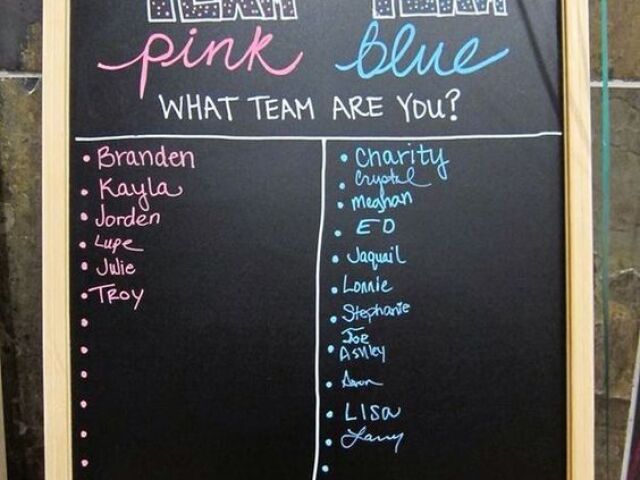 TEAM TEAM
pink blue
WHAT TEAM ARE YOU?
• Branden
• Kayla
• Jorden
• Lupe
• Julie
• Troy
• Charity
• Crystal
• Meghan
• ED
• Jaquail
• Lonnie
• Stephanie
Joe
• Ashley
• Aaron
• LISA
• Larry